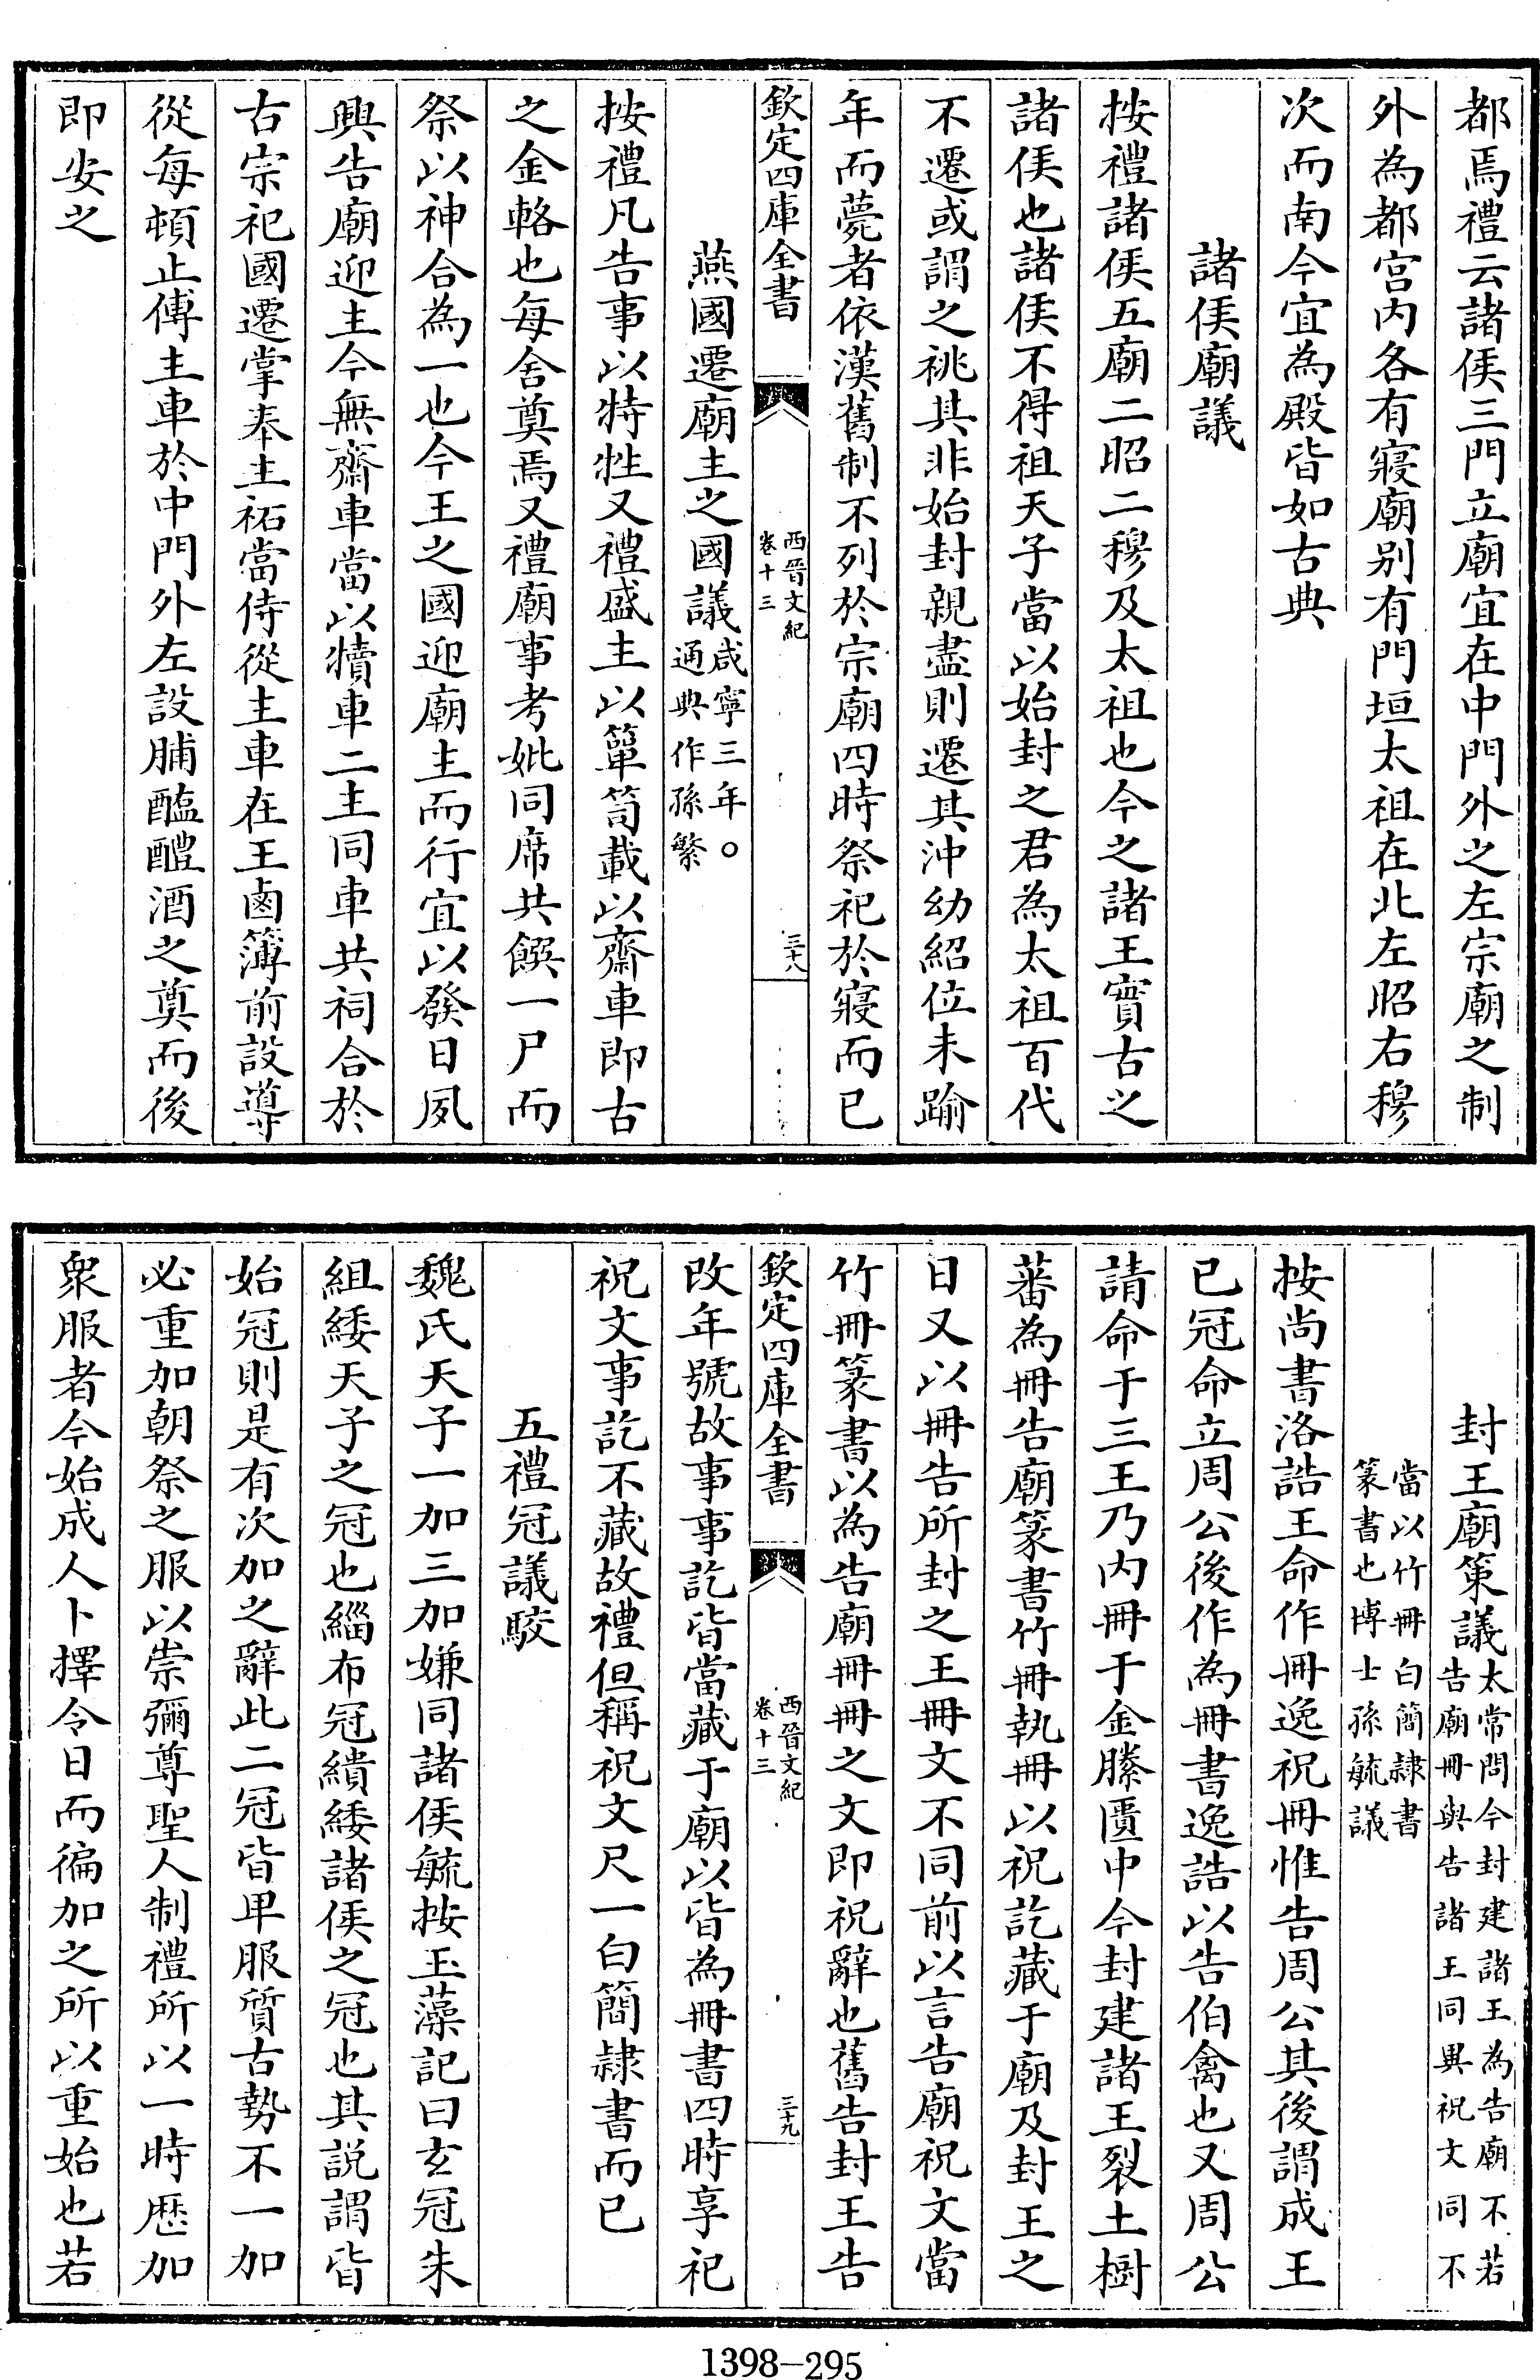 都焉禮云諸侯三門立廟宜在中門外之左宗廟之制
外為都宫内各有寢廟别有門垣太祖在北左昭右穆
次而南今宜為殿皆如古典
諸侯廟議
按禮諸侯五廟二昭二穆及太祖也今之諸王實古之
諸侯也諸侯不得祖天子當以始封之君為太祖百代
不遷或謂之祧其非始封親盡則遷其沖幼紹位未踰
年而薨者依漢舊制不列於宗廟四時祭祀於寢而已
欽定四庫全書
西晉文紀
卷十三
三十八
燕國遷廟主之國議咸寧三年○
通典作孫繁
按禮凡告事以特牲又禮盛主以簞笥載以齋車即古
之金輅也每舍奠焉又禮廟事考妣同席共饌一尸而
祭以神合為一也今王之國迎廟主而行宜以發日夙
興告廟迎主今無齋車當以犢車二主同車共祠合於
古宗祀國遷掌奉主祏當侍從主車在王鹵簿前設導
從每頓止傅主車於中門外左設脯醢醴酒之奠而後
即安之
封王廟策議太常問今封建諸王為告廟不若
告廟冊與告諸王同異祝文同不
當以竹冊白簡隸書
篆書也博士孫毓議
按尚書洛誥王命作冊逸祝冊惟告周公其後謂成王
已冠命立周公後作為冊書逸誥以告伯禽也又周公
請命于三王乃内冊于金縢匱中今封建諸王裂土樹
蕃為冊告廟篆書竹冊執冊以祝訖藏于廟及封王之
日又以冊告所封之王冊文不同前以言告廟祝文當
竹冊篆書以為告廟冊冊之文即祝辭也舊告封王告
欽定四庫全書
西晉文紀
卷十三
三十九
改年號故事事訖皆當藏于廟以皆為冊書四時享祀
祝文事訖不藏故禮但稱祝文尺一白簡隸書而已
五禮冠議駮
魏氏天子一加三加嫌同諸侯毓按玉藻記曰玄冠朱
組緌天子之冠也緇布冠繢緌諸侯之冠也其説謂皆
始冠則是有次加之辭此二冠皆卑服質古勢不一加
必重加朝祭之服以崇彌尊聖人制禮所以一時歴加
衆服者今始成人卜擇令日而徧加之所以重始也若
1398-295